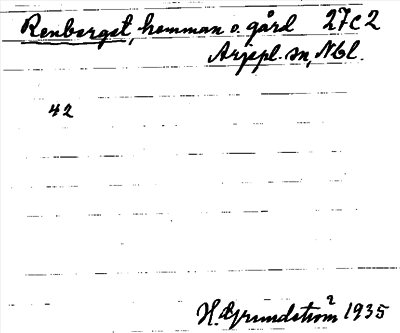 Renberget, hemman o. gård 27c2
Arjepl. sn, Nbl.
42
H. Grundström 1935